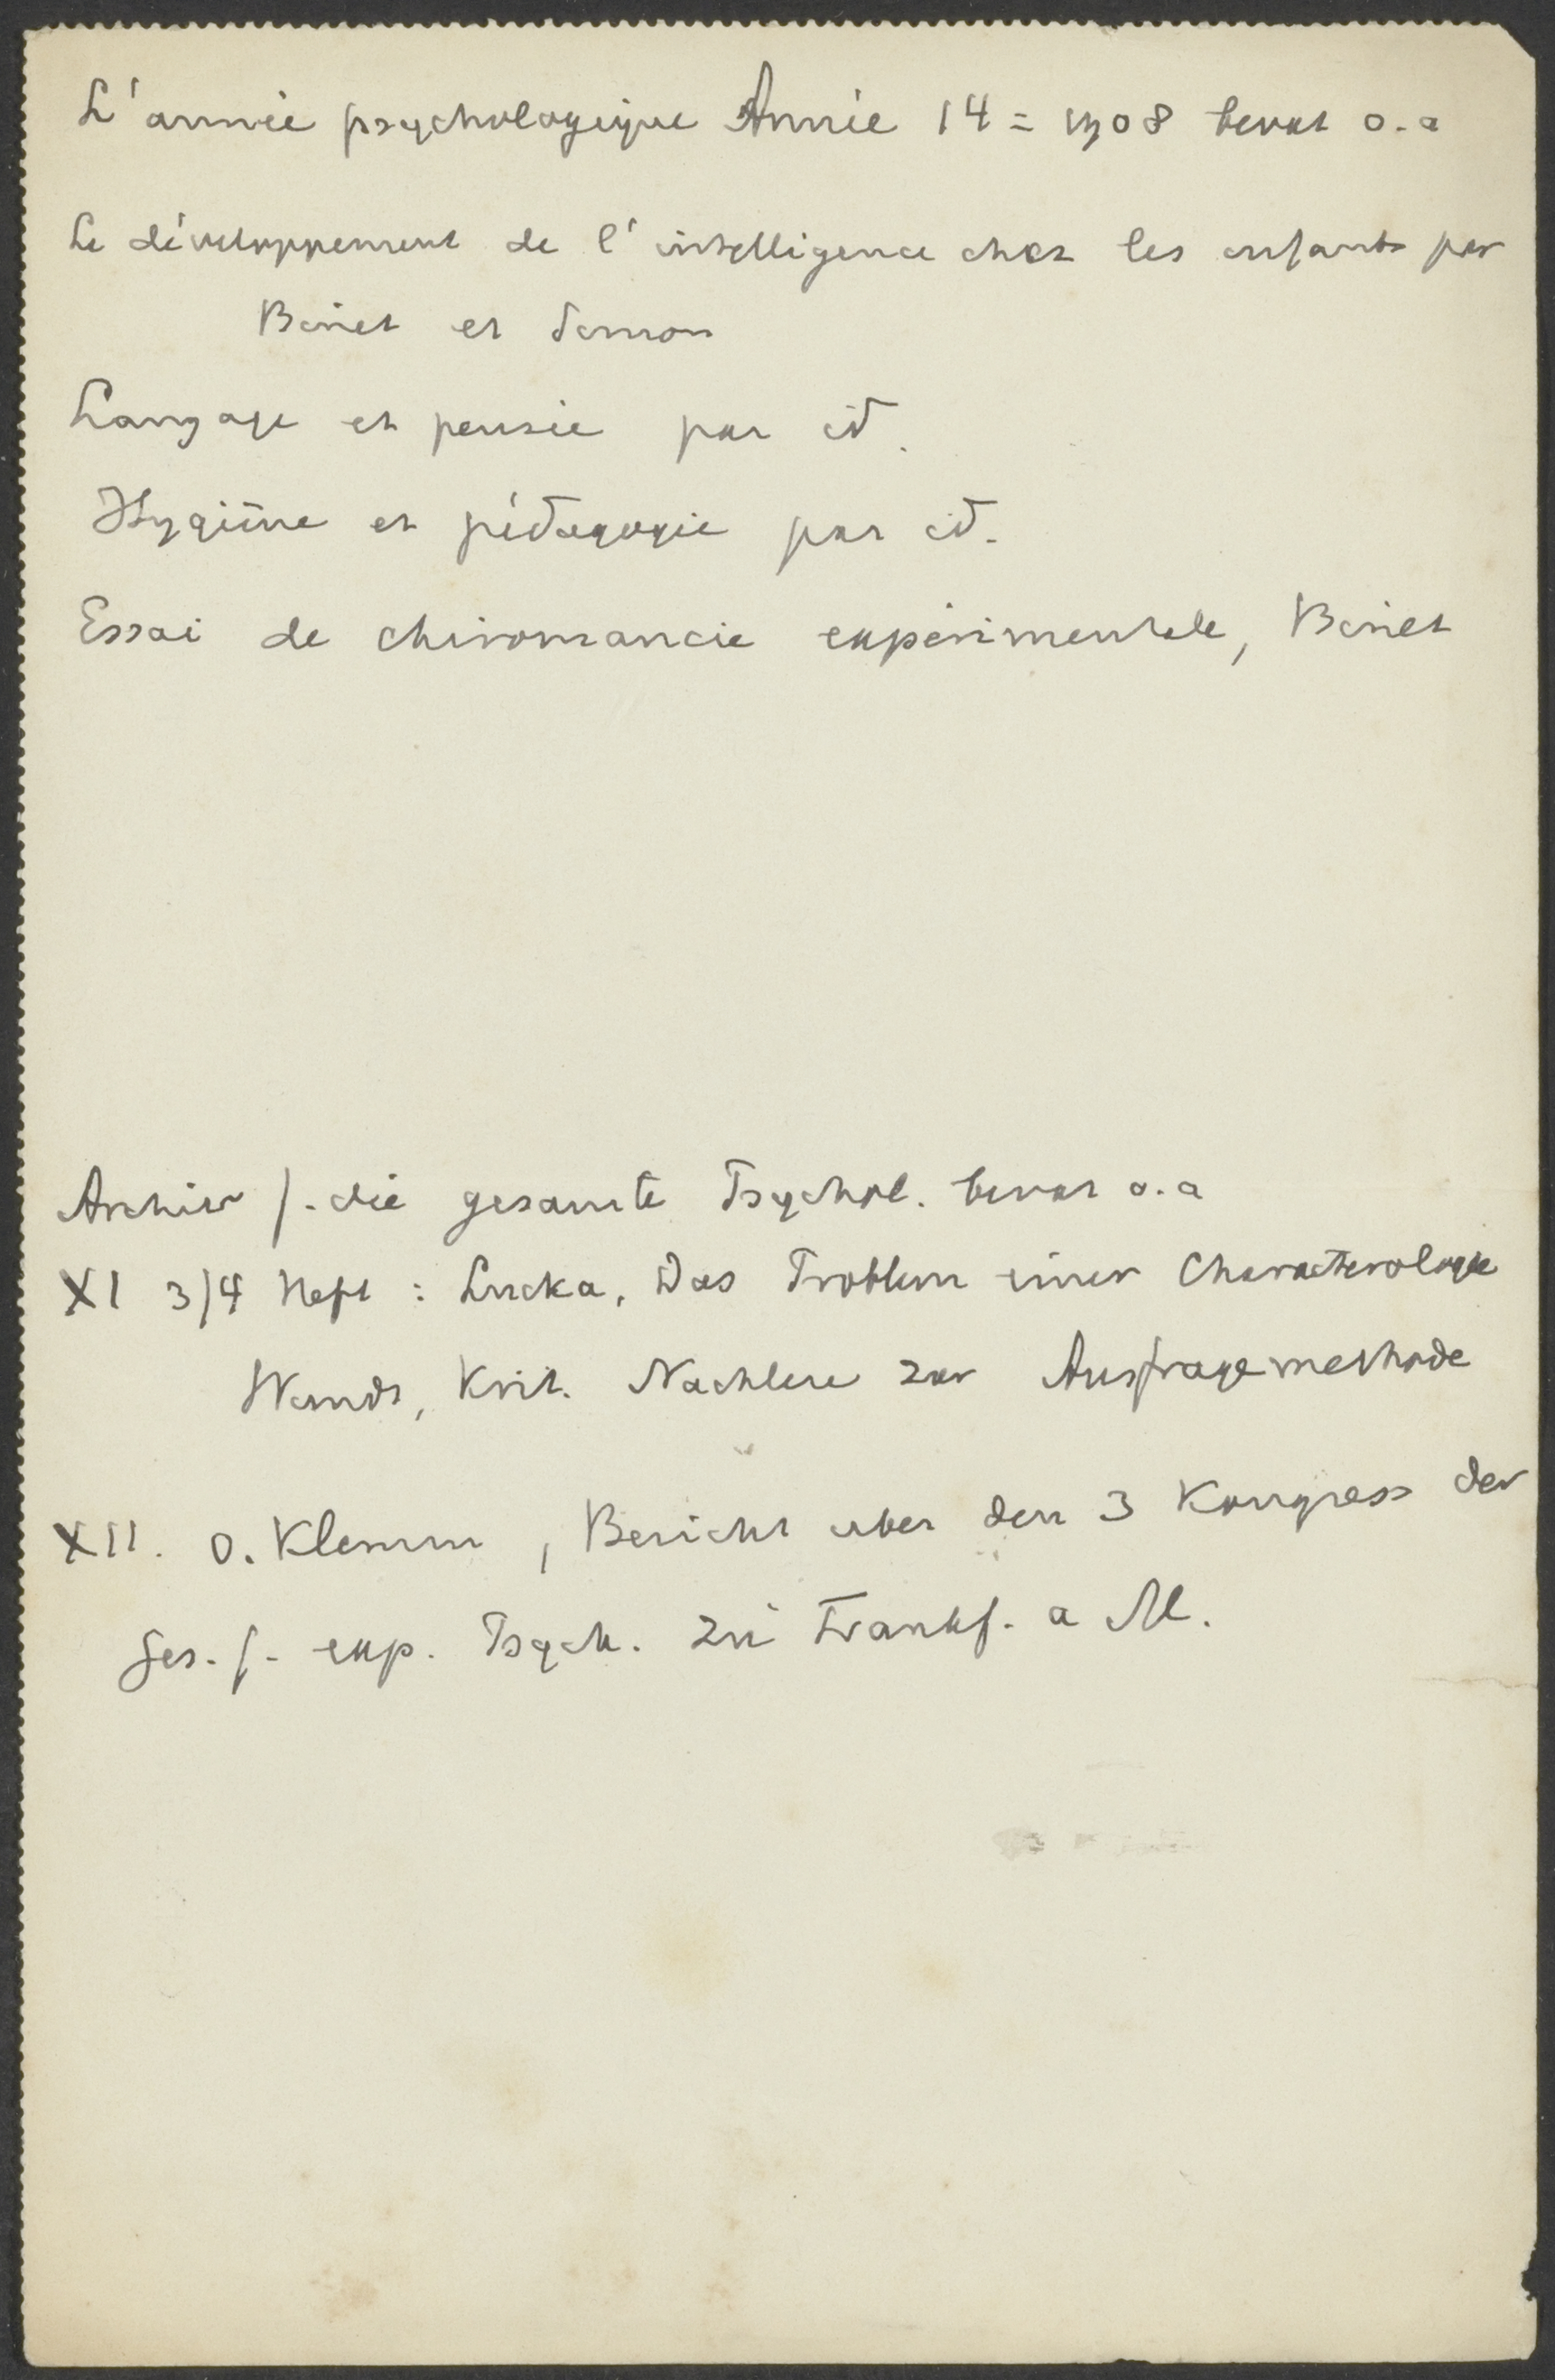 L'année psychologique Année 14 = 1908 bevat o.a
Le développement de l'intelligence chez les enfants par
Binet et Simon
Langage et pensée par id.
Hygiène et pédagogie par id.
Essai de chiromancie expérimentale, Binet
Archiv f. die gesamte Psychol. bevat o.a
XI 3/4 Heft : Lucka, Das Problem einer Charakterologie
Wundt, Krit. Nachlese zur Ausfragemethode
XII. O. Klemm, Bericht uber den 3 Kongress der
Ges. f. exp. Psych. zu Frankf. a M.